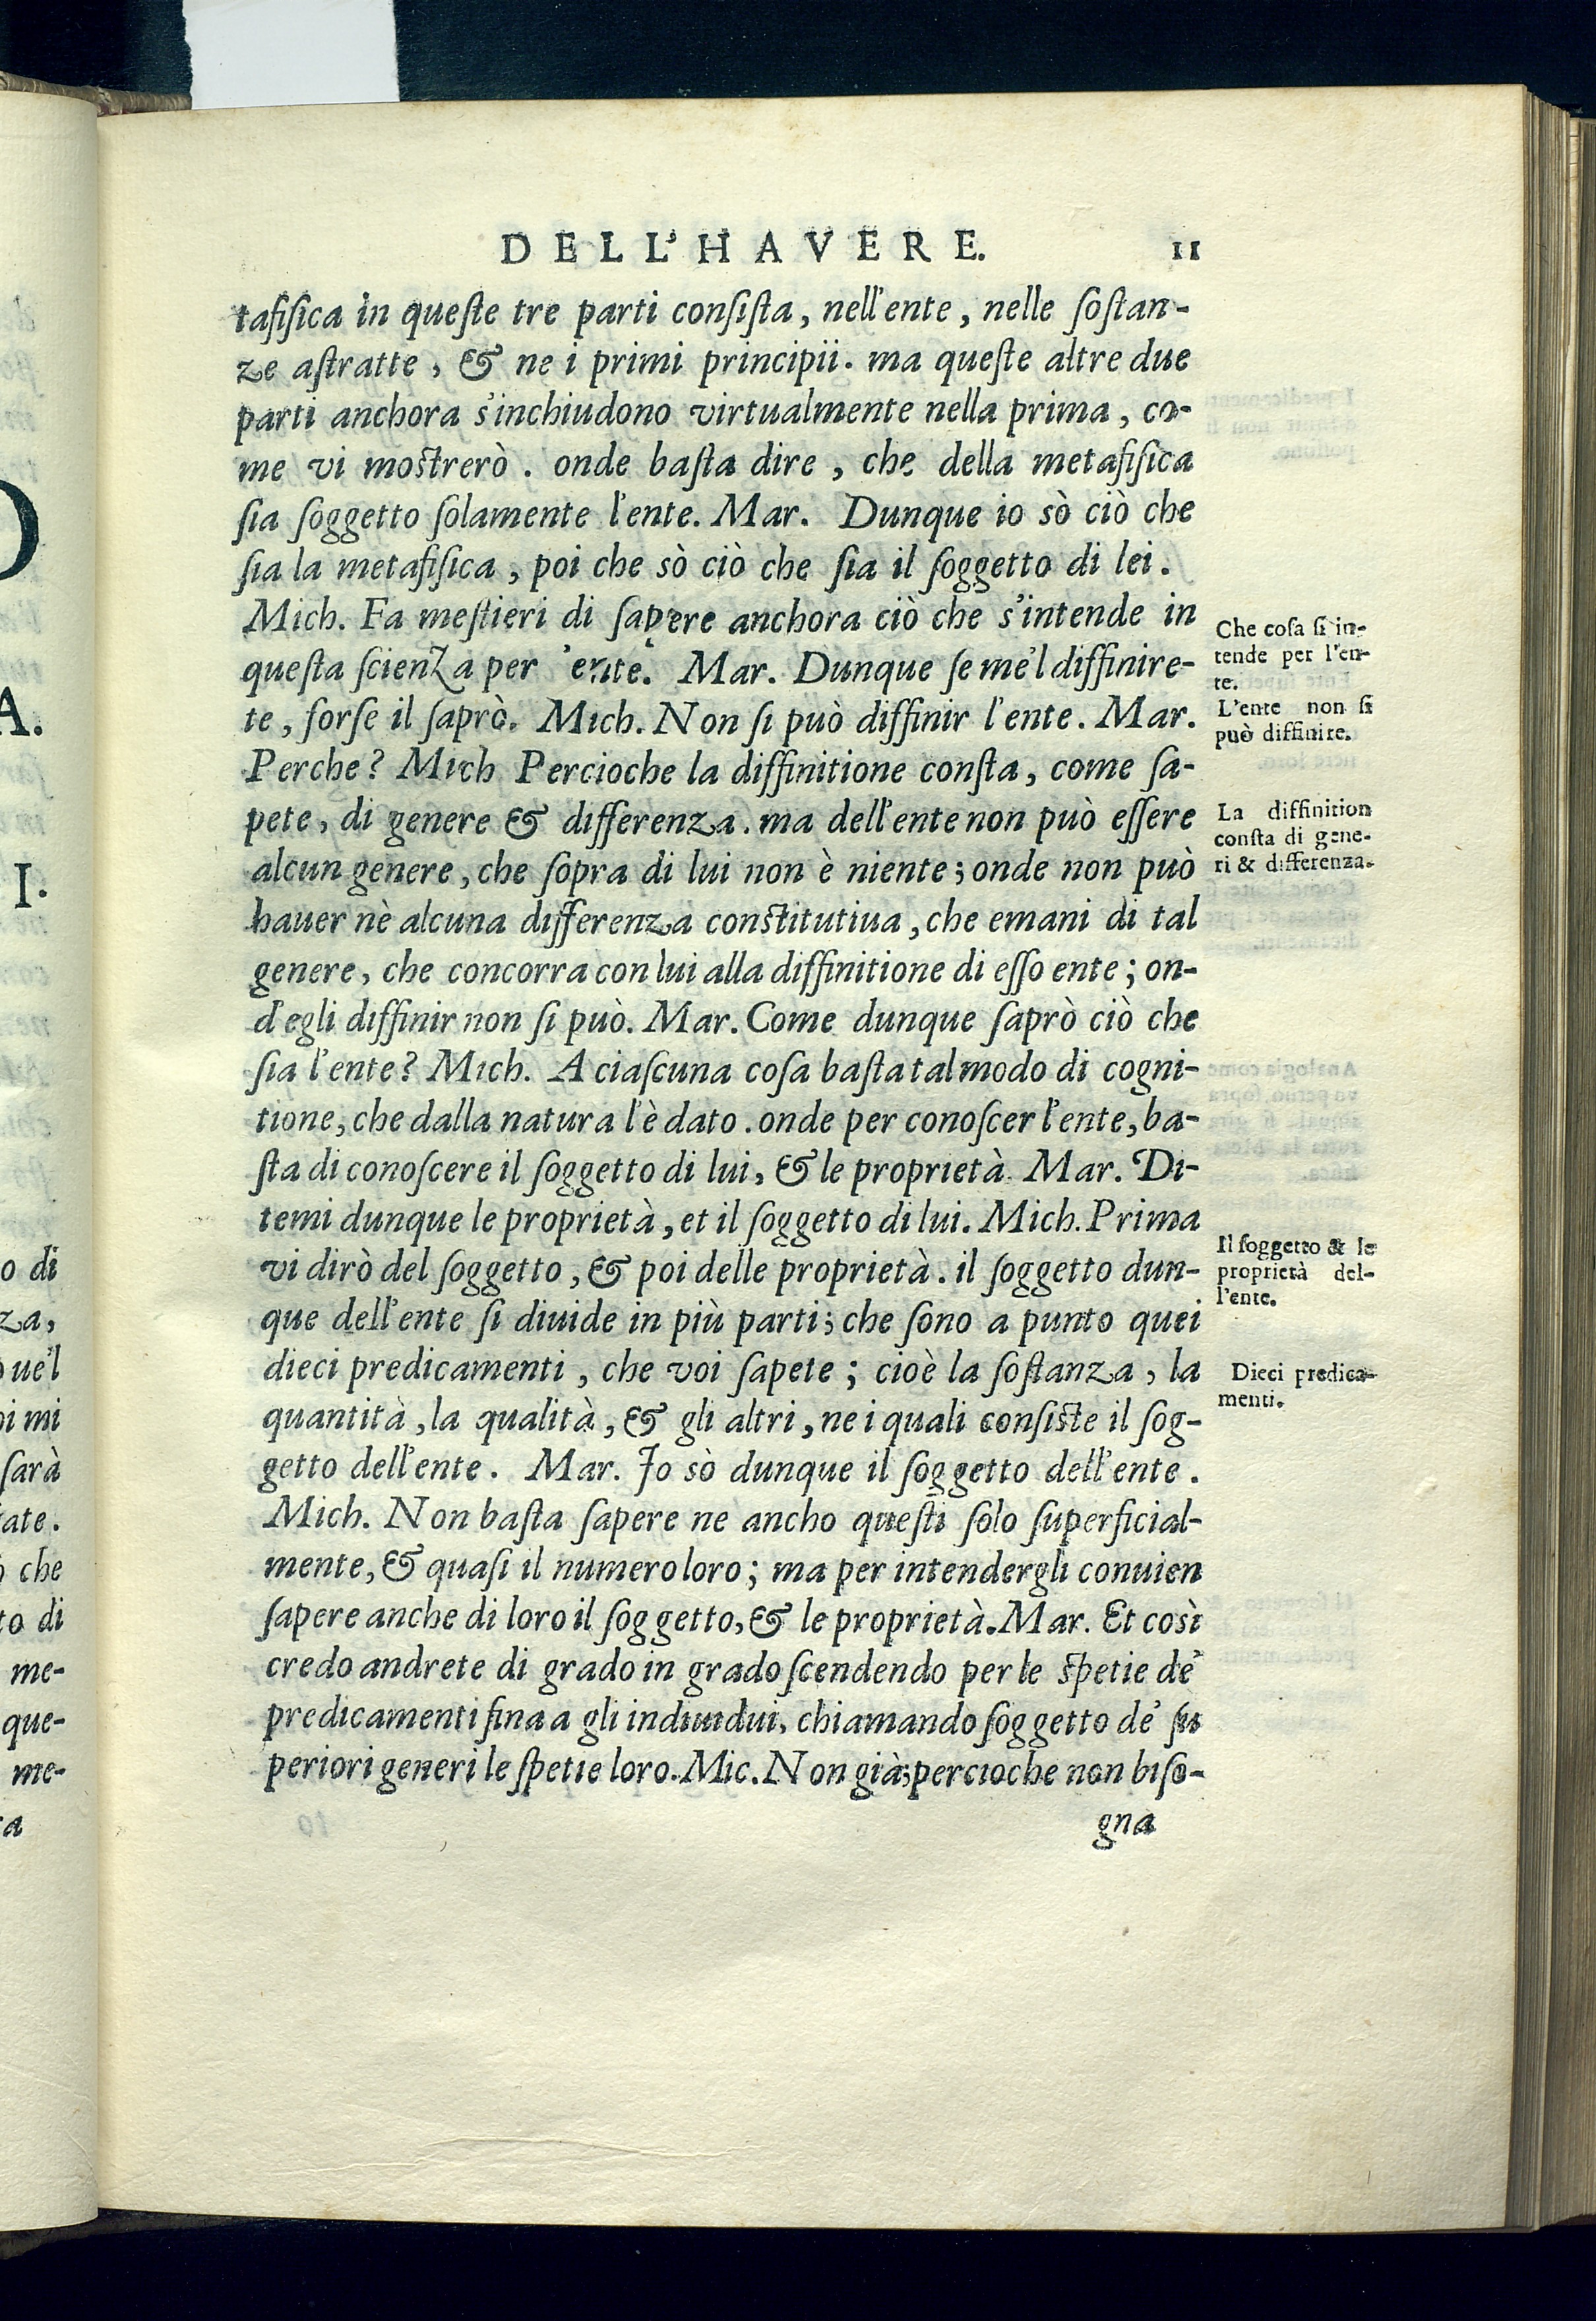 DELL'HAVERE. 11
tafiſica in queſte tre parti conſiſta, nell'ente, nelle ſoſtan-
ze aſtratte, & ne i primi principii. ma queſte altre due
parti anchora s'inchiudono virtualmente nella prima, co-
me vi moſtrerò. onde baſta dire, che della metafiſica
ſia ſoggetto ſolamente l'ente. Mar. Dunque io sò ciò che
ſia la metafiſica, poi che sò ciò che ſia il ſoggetto di lei.
Mich. Fa meſtieri di ſapere anchora ciò che s'intende in
queſta ſcienza per 'ente. Mar. Dunque ſe me'l diffinire-
te, forſe il ſaprò. Mich. Non ſi può diffinir l'ente. Mar.
Perche? Mich Percioche la diffinitione conſta, come ſa-
pete, di genere & differenza. ma dell'ente non può eſſere
alcun genere, che ſopra di lui non è niente; onde non può
hauer nè alcuna differenza conſtitutiua, che emani di tal
genere, che concorra con lui alla diffinitione di eſſo ente; on-
d'egli diffinir non ſi può. Mar. Come dunque ſaprò ciò che
ſia l'ente? Mich. A ciaſcuna coſa baſta tal modo di cogni-
tione, che dalla natura l'è dato. onde per conoſcer l'ente, ba-
ſta di conoſcere il ſoggetto di lui, & le proprietà. Mar. Di-
temi dunque le proprietà, et il ſoggetto di lui. Mich. Prima
vi dirò del ſoggetto, & poi delle proprietà. il ſoggetto dun-
que dell'ente ſi diuide in più parti; che ſono a punto quei
dieci predicamenti, che voi ſapete; cioè la ſoſtanza, la
quantità, la qualità, & gli altri, ne i quali conſiſte il ſog-
getto dell'ente. Mar. Io sò dunque il ſoggetto dell'ente.
Mich. Non baſta ſapere ne ancho queſti ſolo ſuperficial-
mente, & quaſi il numero loro; ma per intendergli conuien
ſapere anche di loro il ſoggetto, & le proprietà. Mar. Et così
credo andrete di grado in grado ſcendendo per le ſpetie de'
predicamenti fina a gli indiuidui, chiamando ſoggetto de' ſu
periori generi le ſpetie loro. Mic. Non già; percioche non biſo-
gna
Che coſa ſi in-
tende per l'en-
te.
L'ente non ſi
può diffinire.
La diffinition
conſta di gene-
ri & differenza.
Il ſoggetto & le
proprietà del-
l'ente.
Dieci predica-
menti.
O
A.
I.
o di
za,
ue'l
oi mi
ſarà
ate.
che
to di
me-
que-
me-
a